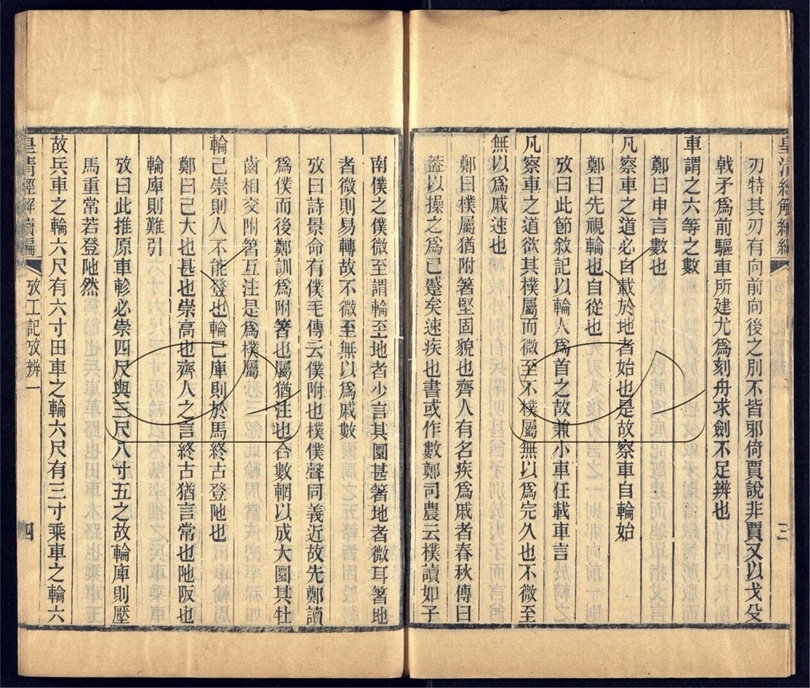 刃特其刃有向前向後之別不皆邪倚賈說非賈又以戈殳
戟矛爲前驅車所建尤爲刻舟求劍不足辨也
車謂之六等之數
鄭曰申言數也
凡察車之道必自載於地者始也是故察車自輪始
鄭曰先視輪也自從也
攷曰此節敘記以輪人爲首之故兼小車任載車言
凡察車之道欲其樸屬而微至不樸屬無以爲完久也不微至
無以爲戚速也
鄭曰樸屬猶附箸堅固貌也齊人有名疾爲戚者春秋傳曰
蓋以操之爲已蹙矣速疾也書或作數鄭司農云樸讀如子
三
南僕之僕微至謂輪至地者少言其圜甚箸地者微耳箸地
者微則易轉故不微至無以爲戚數
攷曰詩景命有僕毛傳云僕附也樸僕聲同義近故先鄭讀
爲僕而後鄭訓爲附箸也屬猶注也合數輞以成大圜其牡
齒相交附箸互注是爲樸屬
輪已崇則人不能登也輪已庳則於馬終古登阤也
鄭曰已大也甚也崇高也齊人之言終古猶言常也阤阪也
輪庳則難引
攷曰此推原車軫必崇四尺與三尺八寸五之故輪庳則壓
馬重常若登阤然
故兵車之輪六尺有六寸田車之輪六尺有三寸乘車之輪六
皇清經解續編
攷工記攷辨一
四